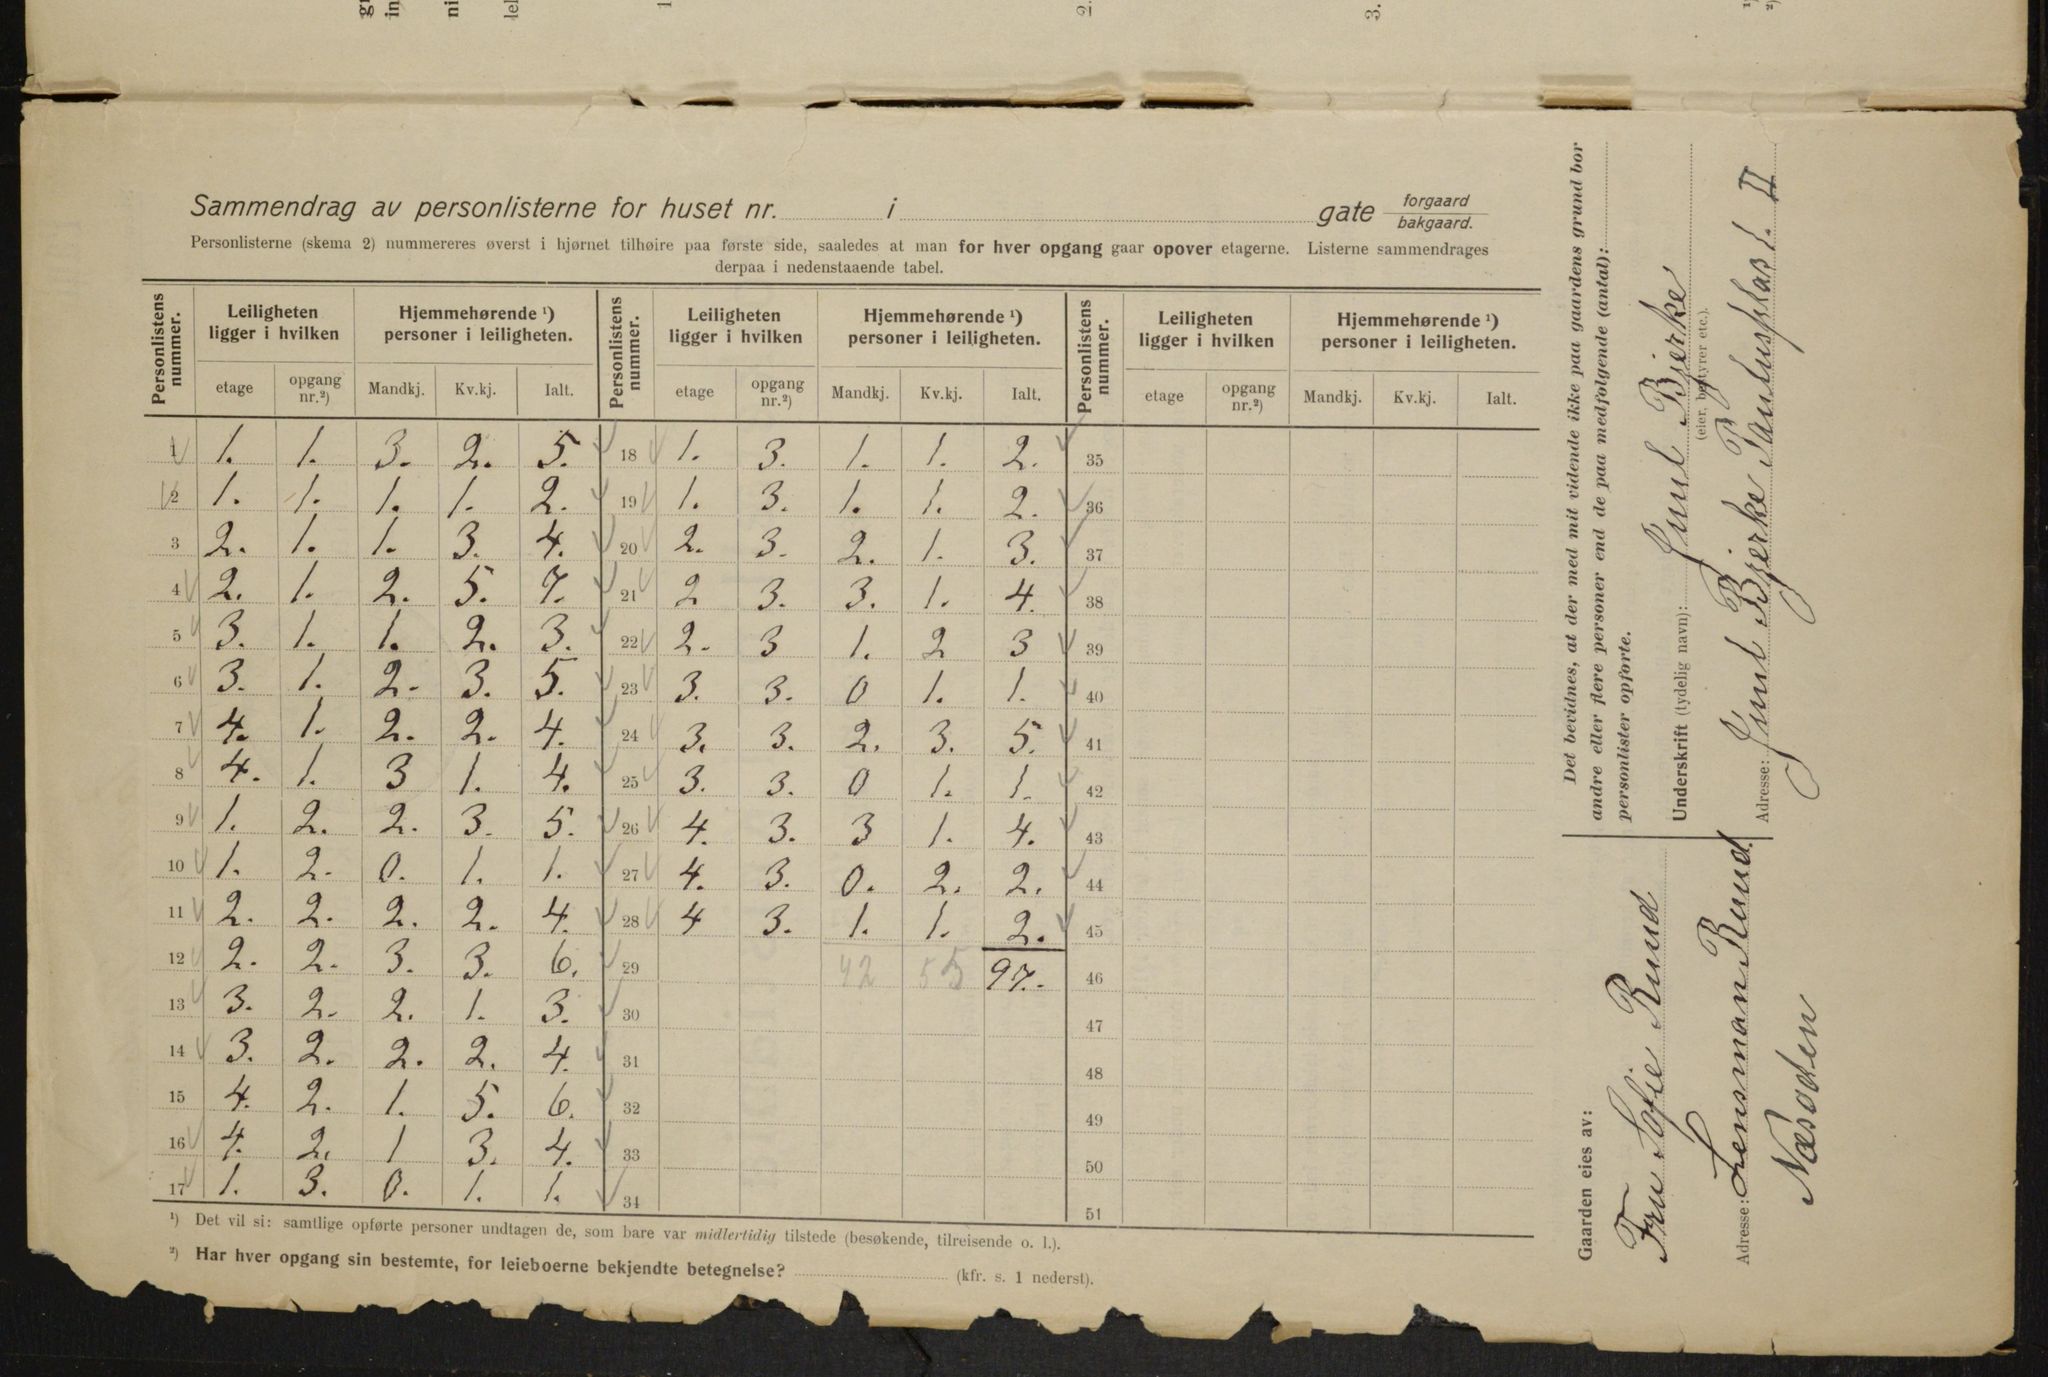 Sammendrag av personlisterne for huset nr. i gate forgaard bakgaard.
Personlisterne (skema 2) nummereres øverst i hjørnet tilhøire paa første side, saaledes at man for hver opgang gaar opover etagerne. Listerne sammendrages
derpaa i nedenstaaende tabel.
Personlistens nummer. Leiligheten ligger i hvilken Hjemmehørende ¹) personer i leiligheten. Personlistens nummer. Leiligheten ligger i hvilken Hjemmehørende ¹) personer i leiligheten. Personlistens nummer. Leiligheten ligger i hvilken Hjemmehørende ¹) personer i leiligheten.
etage opgang nr.²) Mandkj. Kv.kj. Ialt. etage opgang nr.²) Mandkj. Kv.kj. Ialt. etage opgang nr.²) Mandkj. Kv.kj. Ialt.
1 1. 1. 3. 2. 5. 18 1. 3. 1. 1. 2. 35
2 1. 1. 1. 1. 2. 19 1. 3. 1. 1. 2. 36
3 2. 1. 1. 3. 4. 20 2. 3. 2. 1. 3. 37
4 2. 1. 2. 5. 7. 21 2 3. 3. 1. 4. 38
5 3. 1. 1. 2. 3. 22 2. 3 1. 2 3 39
6 3. 1. 2. 3. 5. 23 3. 3. 0 1. 1. 40
7 4. 1. 2. 2. 4. 24 3. 3. 2. 3. 5. 41
8 4. 1. 3 1. 4. 25 3. 3. 0 1. 1. 42
9 1. 2. 2. 3. 5. 26 4. 3. 3 1. 4. 43
10 1. 2. 0. 1. 1. 27 4. 3. 0. 2. 2. 44
11 2. 2. 2. 2. 4. 28 4 3. 1. 1. 2. 45
12 2. 2. 3. 3. 6. 29 42 55 97. 46
13 3. 2. 2. 1. 3. 30 47
14 3. 2. 2. 2. 4. 31 48
15 4. 2. 1. 5. 6. 32 49
16 4. 2. 1 3. 4. 33 50
17 1. 3. 0. 1. 1. 34 51
¹) Det vil si: samtlige opførte personer undtagen de, som bare var midlertidig tilstede (besøkende, tilreisende o. l.).
²) Har hver opgang sin bestemte, for leieboerne bekjendte betegnelse? (kfr. s. 1 nederst).
Det bevidnes, at der med mit vidende ikke paa gaardens grund bor
andre eller flere personer end de paa medfølgende (antal):
personlister opførte.
Underskrift (tydelig navn): Juul Bjerke
(eier, bestyrer etc.).
Adresse: Juul Bjerke II
Gaarden eies av:
Fru Sofie Ruud
Adresse: Lensman Ruud
Næsodden